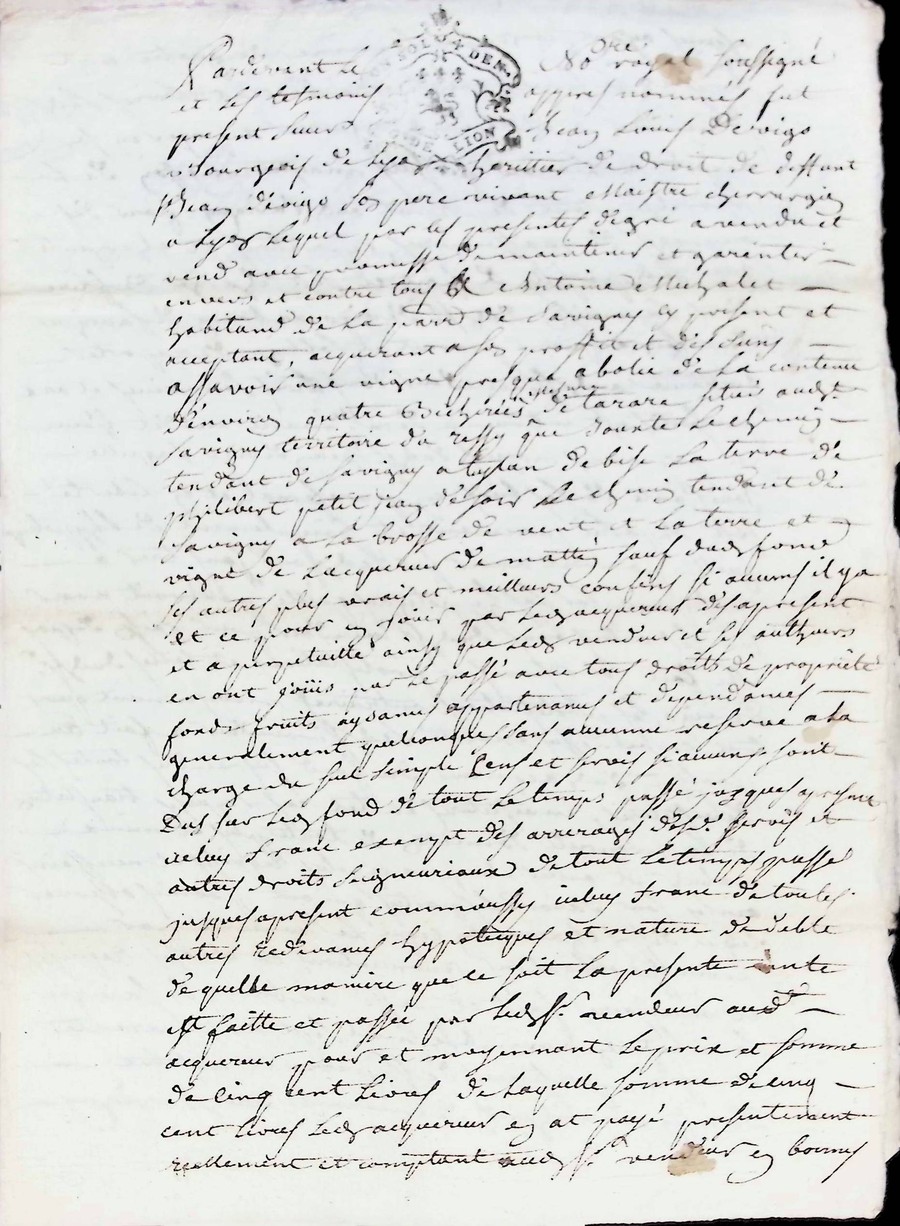 Pardevant le No.re royal soussigné
et les tesmoins appres nommés fut
present sieur Jean Louis Dévigo
Bourgeois de Lyon heritier de droit de deffunt
Jean dévigo son pere vivant Maistre cherurgien
a Lyon Lequel par les presentes dégré a vendu et
vend avec promesse de maintenir et garentir
envers et contre tous A Antoine Michalet
habitand de La parr.e de Savigny cy present et
acceptant, acquerant a son proffit et des siens
assavoir une vigne presque abolie de La contenu
d'environ quatre Bicherées mesure de tarare sittuée aud.t
Savigny territoire du ressy que jouxte Le chemin
tendant de Savigny a de bise La terre de
philibert petit jean de soir Le chemin tendant de
Savigny a La brosse de vent et La terre et
vigne de L'acquereur de mattin sauf dud fond
ses autres plus vrais et meilleurs confins si aucuns il y a
et ce pour en jouir par Led acquereur des apresent
et a perpetuitté ainsy que Led vendeur et ses autheurs
en ont joüis par Le passé avec tous droits de propriété
fonds fruits aysances appartenances et dependances
generalement quelconques sans aucunne reserve a La
charge du seul simple Cens et servis si aucuns sont
Dus sur Led fond de tout Le temps passé jusques apresent
iceluy franc exempt des arrerages desd. servis et
autres droits seigneuriaux de tout Le temps passé
jusques apresent comme aussy iceluy franc de toutes
autres redevances hypotecques et nature de debte
de quelle maniere que ce soit La presente vente
est faitte et passée par Led S.r vendeur aud.t
acquereur pour et moyennant Le prix et somme
de Cinq cent Livres de Laquelle somme de cinq
cent Livres Led acquereur en at payé presentement
reellement et comptant aud S.r vendeur en bonnes
DE LION